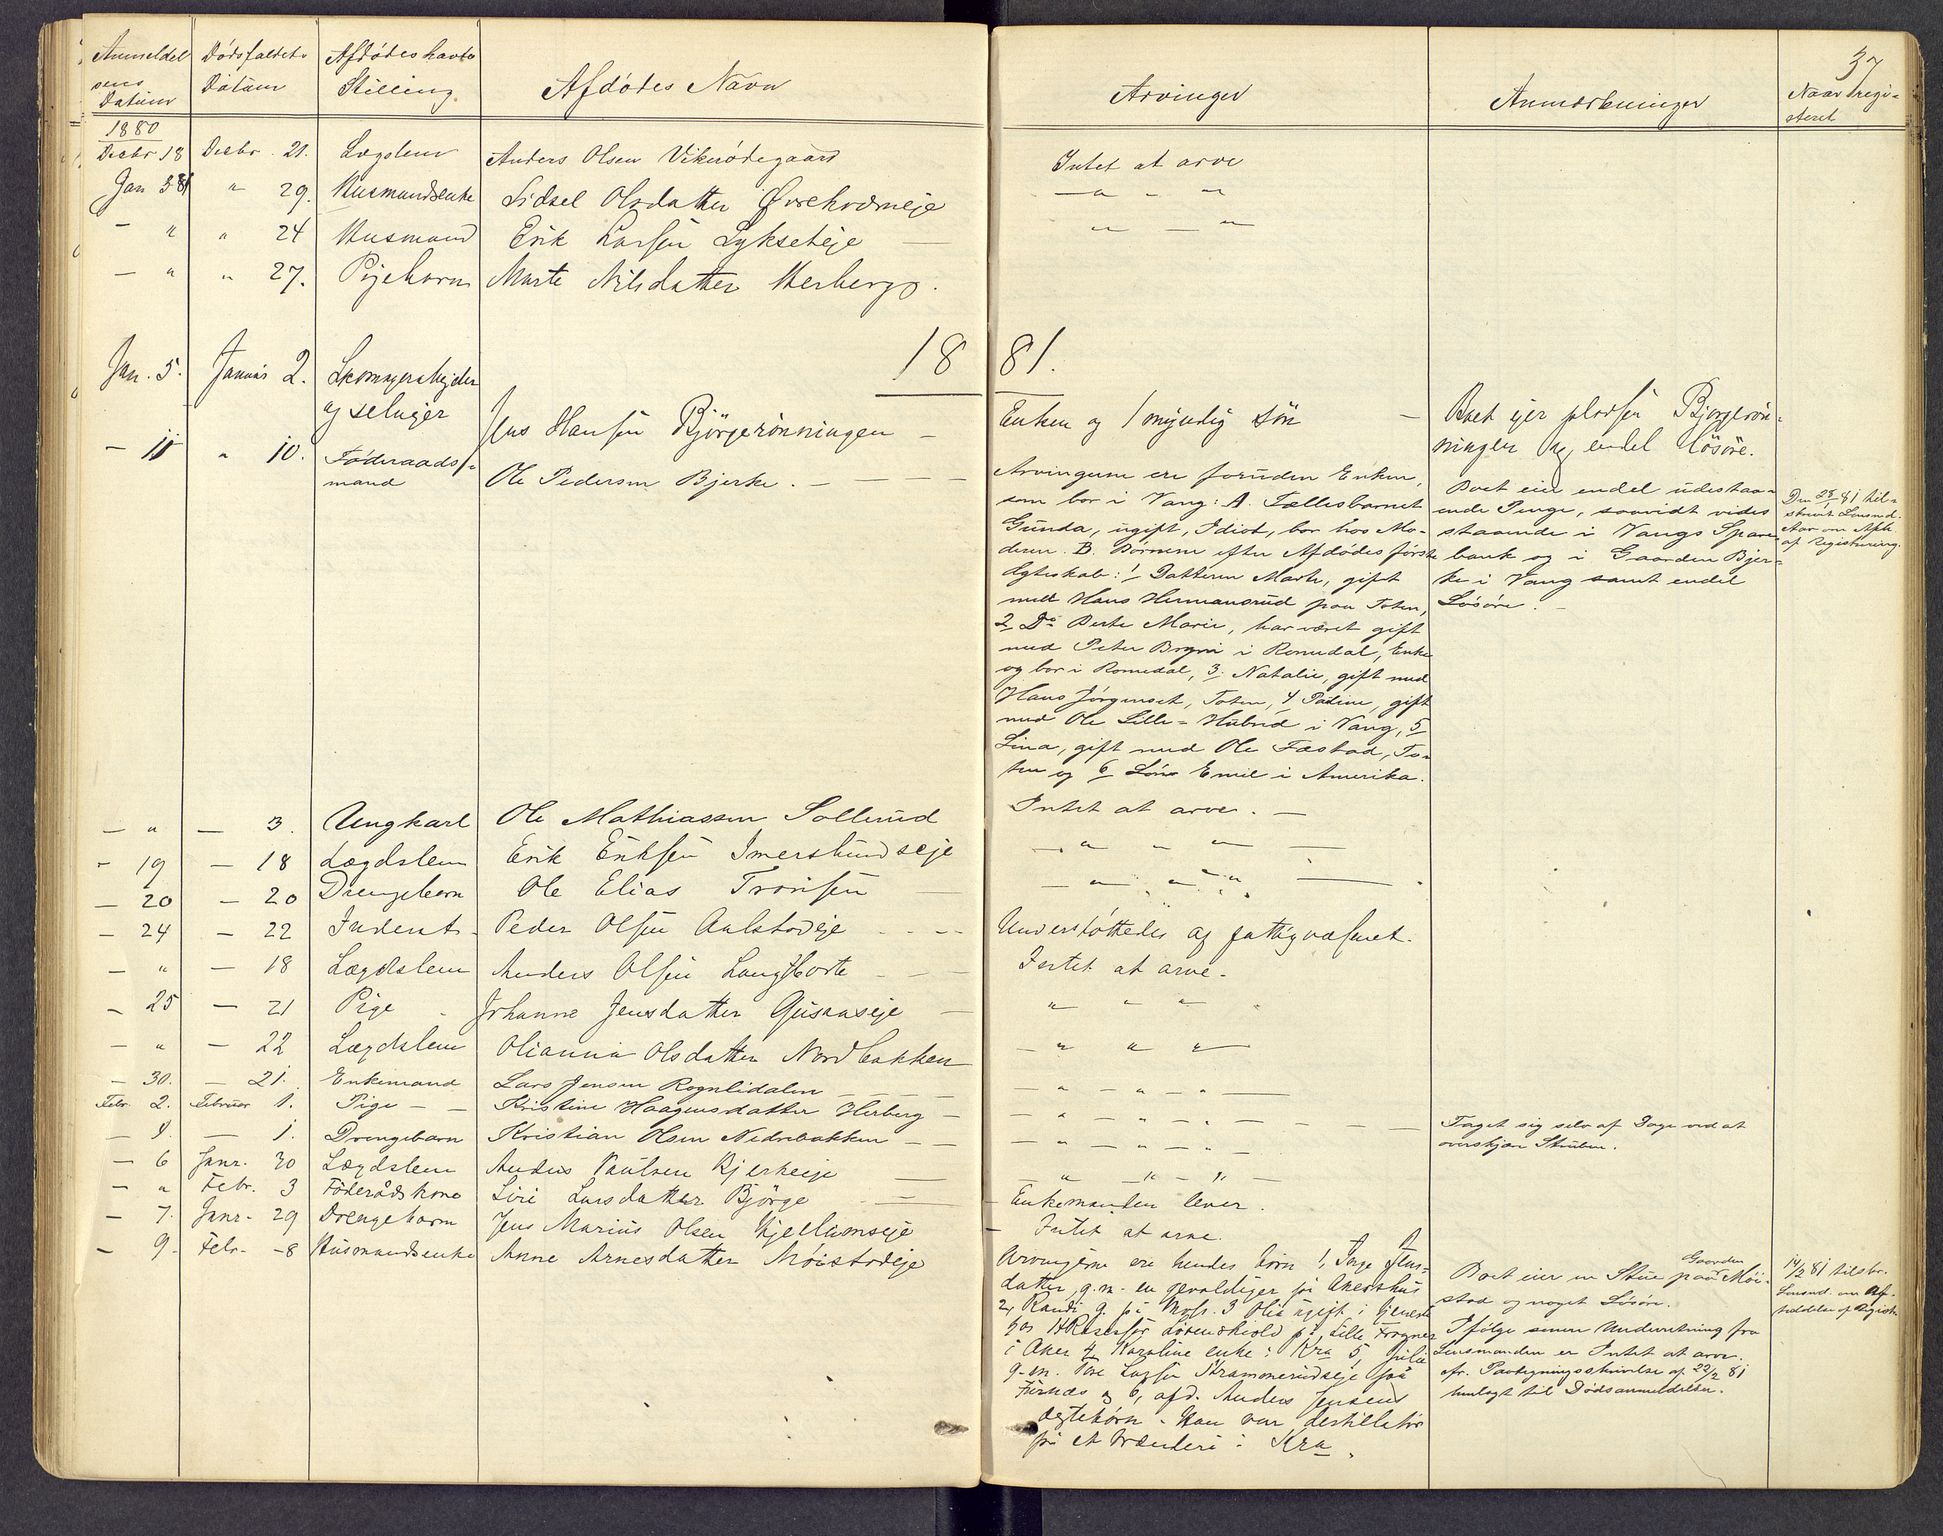 37
Anmeldel
sens
Datum
Dødsfaldets
Datum
Afdødes havte
Stilling
Afdødes Navn
Arvinger
Anmærkninger
Naar regi-
steret
1880
Decbr 18 Decbr. 21. Lægdslem Anders Olsen Vikerødegaard Intet at arve
Jan 3 81 " 29. Husmandsenke Sidsel Olsdatter Øvrekværneje — " — "
— " " 24 Husmand Erik Larsen Lykseteje " — "
— " " 27. Pigebarn Marte Nilsdatter Herberg.
1881.
Jan. 5. Januar 2. Skomagerarbejder
og selvejer Jens Hansen Bjørgerønningen — Enken og 1 myndig søn — Boet ejer pladsen Bjørgerøn-
ningen og endel løsøre.
— 11 " 10. Føderaads-
mand Ole Pedersen Bjerke. — Arvingerne ere foruden Enken,
som bor i Vang: A. Fællesbarnet
Gunda, ugift, Idiot, bor hos Mo-
deren. B. Børnene efter Afdødes første
Ægteskab: 1 Datteren Marte, gift
med Hans Hermansrud paa Toten,
2 Do Berte Marie, har været gift
med Peter Bryni i Romedal, Enke
og bor i Romedal, 3. Natalie, gift med
Hans Jørgenset, Toten, 4 Pauline, gift
med Ole Lille-Hubred i Vang, 5
Lina, gift med Ole Fæstad, To-
ten og 6 Søn Emil i Amerika.
Boet eier endel udestaa-
ende Penge, saavidt vides
staaende i Vangs Spare-
bank og i Gaarden Bjer-
ke i Vang samt endel
Løsøre. —
Den 28/1 81 til-
skrevet Lensmd.
Aar om Afh.
af Registrering.
— " — 3. Ungkarl Ole Mathiassen Sollerud Intet at arve. —
- 19 — 18 Lægdslem Erik Eriksen Imerslundseje — " — " —
— 20 — 20 Drengebarn Ole Elias Tronsen — " — " — " —
— 24 — 22 Inderst - Peder Olsen Aalstadeje Understøttedes af fattigvæsenet.
— " — 18 Lægdslem Anders Olsen Langthorte Intet at arve.
— 25 — 21 Pige Johanne Jensdatter Gusaaseje " " "
— " — 22 Lægdslem Olianna Olsdatter Nordbakken — " " "
— 30. — 21. Enkemand Lars Jensen Rognlidalen — " — " — "
Febr. 2. Februar 1. Pige — Kristine Haagensdatter Herberg — " — " — "
— 4. — 1. Drengebarn Kristian Olsen Nedrebakken — " — " — " Taget sig selv af Dage ved at
overskjære Struben.
— 6 Janr. 30 Lægdslem Anders Paulsen Bjerkeeje — " — " — "
— " Febr. 3 Føderådskone Siri Larsdatter Bjørge Enkemanden lever.
— 7. Janr. 29 Drengebarn Jens Marius Olsen Kjellumseje — Intet at arve.
— 9. Febr. 8 Husmandsenke Anne Arnesdatter Møistadeje
Arvingerne ere hendes børn 1, Inge Jens-
datter, g. m. en gevaldiger på Akershus
2, Randi g. på Moss. 3 Olia ugift i tjeneste
hos Løvenskiold på Lille Frogner
i Aker 4 Karoline enke i Kra 5, Julie
g. m. Tore Larsen Skrammerudseje på
Furnæs og 6, afd. Anders Jensens
ægtebørn. Han var destillatør
på et brænderi i Kra.
Boet eier en Stue paa Gaarden Møi-
stad og noget Løsøre.
Ifølge senere Underretning fra
Lensmanden er Intet at arve.
cfr. Paategningsskrivelse af 22/2 81
henlagt til Dødsanmeldelser.
14/2 81 tilskr.
Lensmd. om Af-
holdelse af Registr.